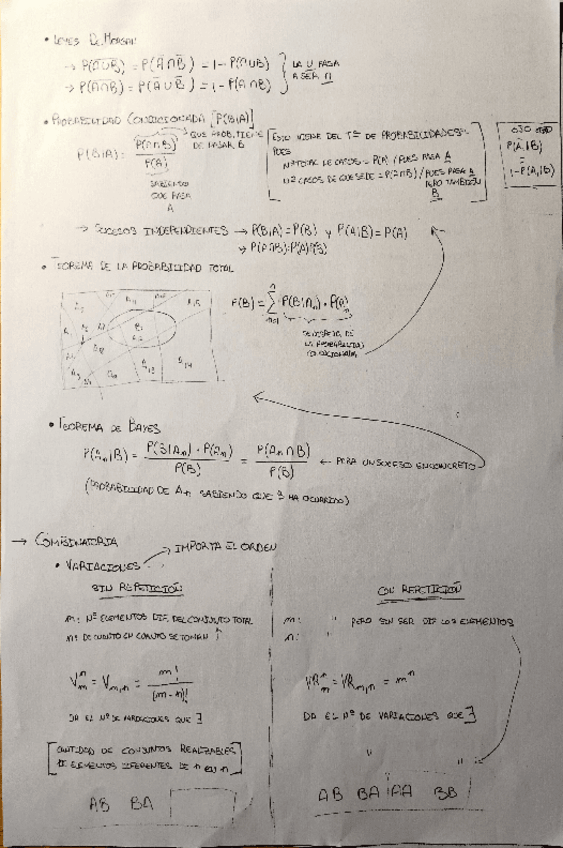 • LEYES DE MORGAN
→ P(A̅∪̅B̅) = P(A̅∩B̅) = 1-P(A∪B)
→ P(A̅∩̅B̅) = P(A̅∪B̅) = 1-P(A∩B)
LA U PASA
A SER ∩
• PROBABILIDAD CONDICIONADA [P(B|A)]
P(B|A) = P(A∩B) / P(A)
QUE PROB. TIENE
DE PASAR B
SABIENDO
QUE PASA
A
ESTO VIENE DEL Tª DE PROBABILIDADES
PUES
Nº TOTAL DE CASOS = P(A) / PUES PASA A
Nº CASOS DE QUE SE DE = P(A∩B) / PUES PASA A
PERO TAMBIÉN
B
OJO
P(A̅|B)
=
1-P(A|B)
→ SUCESOS INDEPENDIENTES → P(B|A)=P(B) Y P(A|B)=P(A)
→ P(A∩B)=P(A)P(B)
• TEOREMA DE LA PROBABILIDAD TOTAL
P(B) = ∑ P(B|Aₙ) · P(Aₙ)
n
n=1
DE LA PROBABILIDAD
CONDICIONADA
• TEOREMA DE BAYES
P(Aₙ|B) = P(B|Aₙ) · P(Aₙ) / P(B) = P(Aₙ∩B) / P(B) ← PARA UN SUCESO EN CONCRETO
(PROBABILIDAD DE Aₙ SABIENDO QUE B HA OCURRIDO)
→ COMBINATORIA
• VARIACIONES → IMPORTA EL ORDEN
SIN REPETICIÓN
m: Nº ELEMENTOS DIF. DEL CONJUNTO TOTAL
n: DE CUANTO EN CUANTO SE TOMAN
Vₘⁿ = Vₘ,ₙ = m! / (m-n)!
DA EL Nº DE VARIACIONES QUE ∃
[CANTIDAD DE CONJUNTOS REALIZABLES
DE ELEMENTOS DIFERENTES DE n EN n]
AB BA
CON REPETICIÓN
m: " PERO SIN SER DIF LOS ELEMENTOS
n: "
VRₘⁿ = VRₘ,ₙ = mⁿ
DA EL Nº DE VARIACIONES QUE ∃
" "
AB BA AA BB